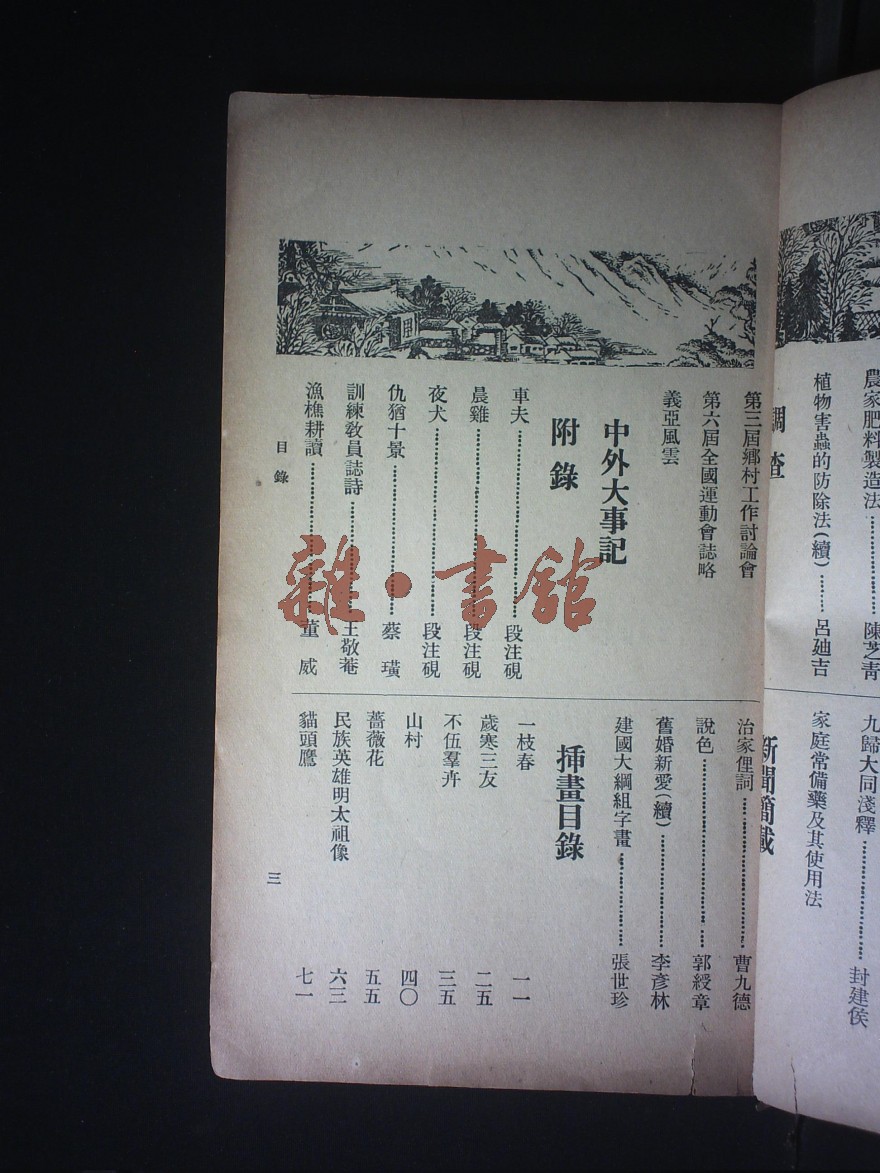 農家肥料製造法 陳芝青
植物害蟲的防除法(續) 呂廸吉
調查
九歸大同淺釋 封建侯
家庭常備藥及其使用法
新聞簡載
第三屆鄉村工作討論會
第六屆全國運動會誌略
義亞風雲
中外大事記
附錄
車夫 段注硯
晨雞 段注硯
夜犬 段注硯
仇猶十景 蔡璜
訓練教員誌詩 王敬菴
漁樵耕讀 董威
治家俚詞 曹九德
說色 郭綬章
舊婚新愛(續) 李彥林
建國大綱組字畫 張世珍
挿畫目錄
一枝春 一一
歲寒三友 二五
不伍羣卉 三五
山村 四〇
薔薇花 五五
民族英雄明太祖像 六三
貓頭鷹 七一
目錄
三
雜·書館